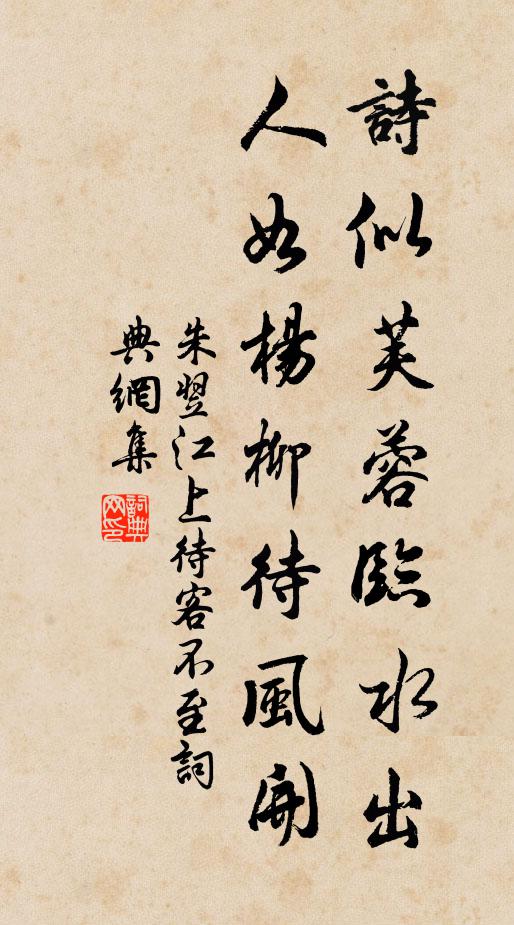 詩似芙蓉臨水出
人如楊柳待風開
朱翌江上待客不至詞
典網集
詞典網印